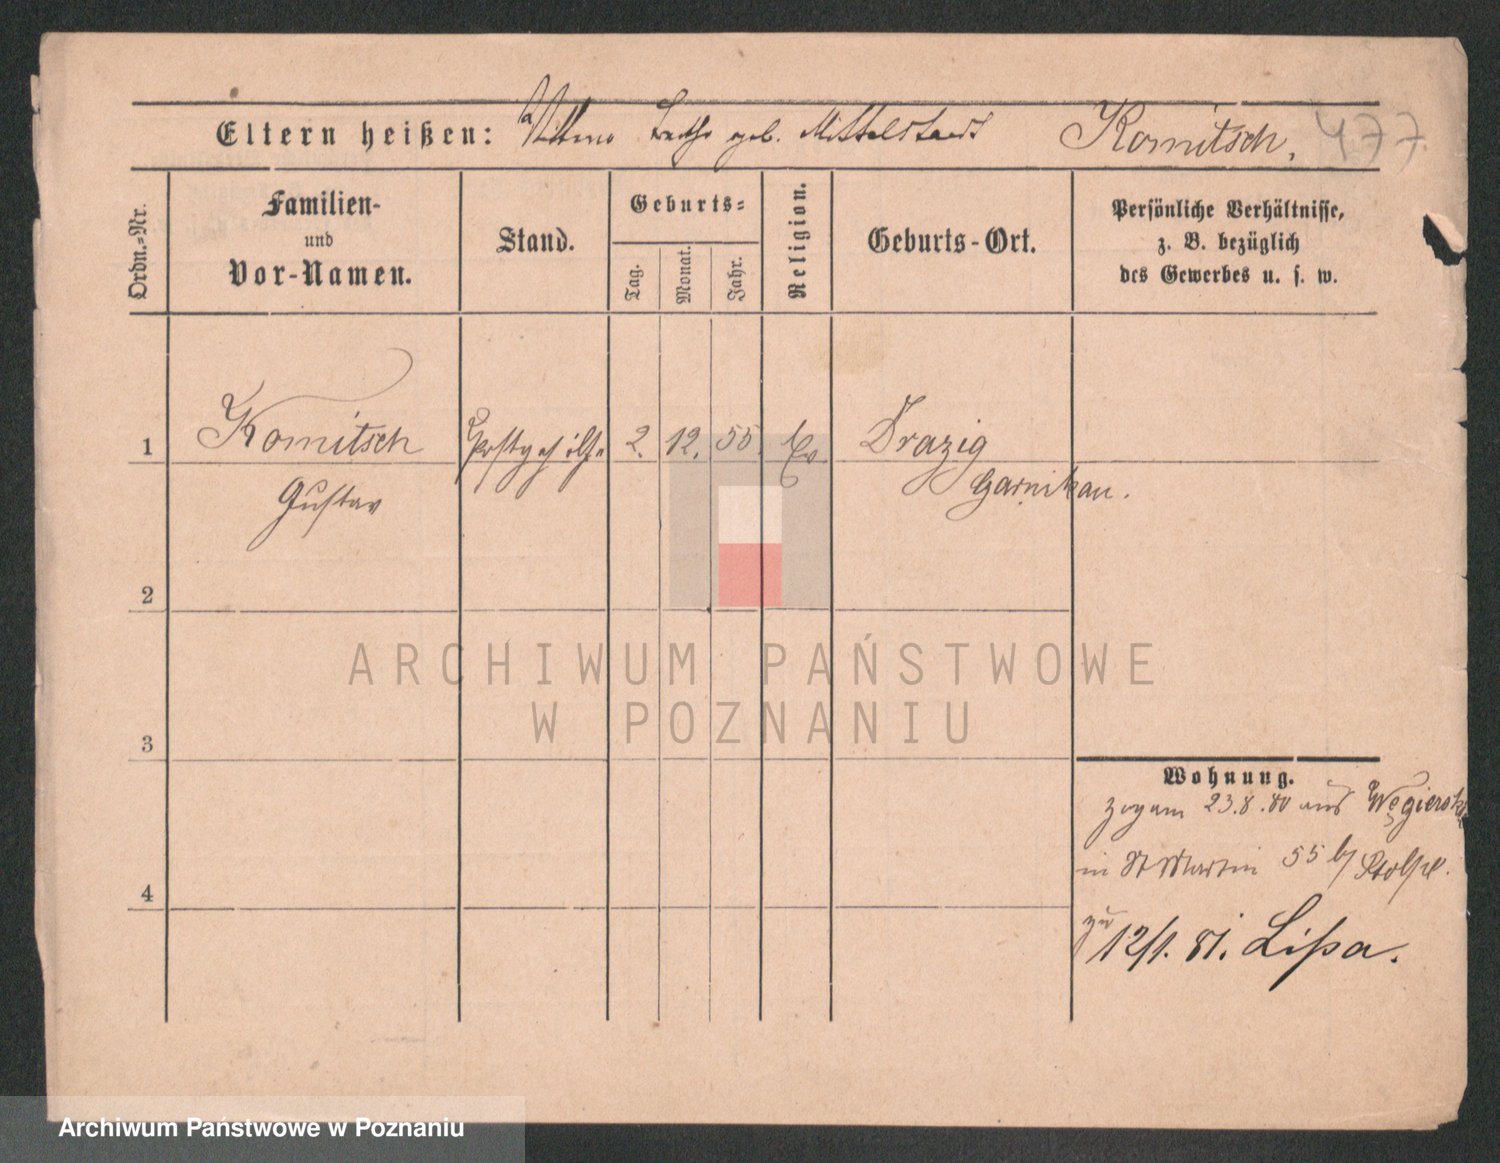 Eltern heißen: geb. Mittelstaedt Komitsch, 477.
Ordn.=Nr.
Familien-
und
Vor-Namen.
Stand.
Geburts=
Tag.
Monat.
Jahr.
Religion.
Geburts-Ort.
Persönliche Verhältnisse,
z. B. bezüglich
des Gewerbes u. s. w.
1 Komitsch Postgehilfe 2. 12. 55. Ev. Drazig
Gustav Czarnikau.
2
3
4
ARCHIWUM PAŃSTWOWE
W POZNANIU
Wohnung.
zog am 23.8.80 aus
in St Martin 55 b/
zu
12/1. 81. Lissa.
Archiwum Państwowe w Poznaniu